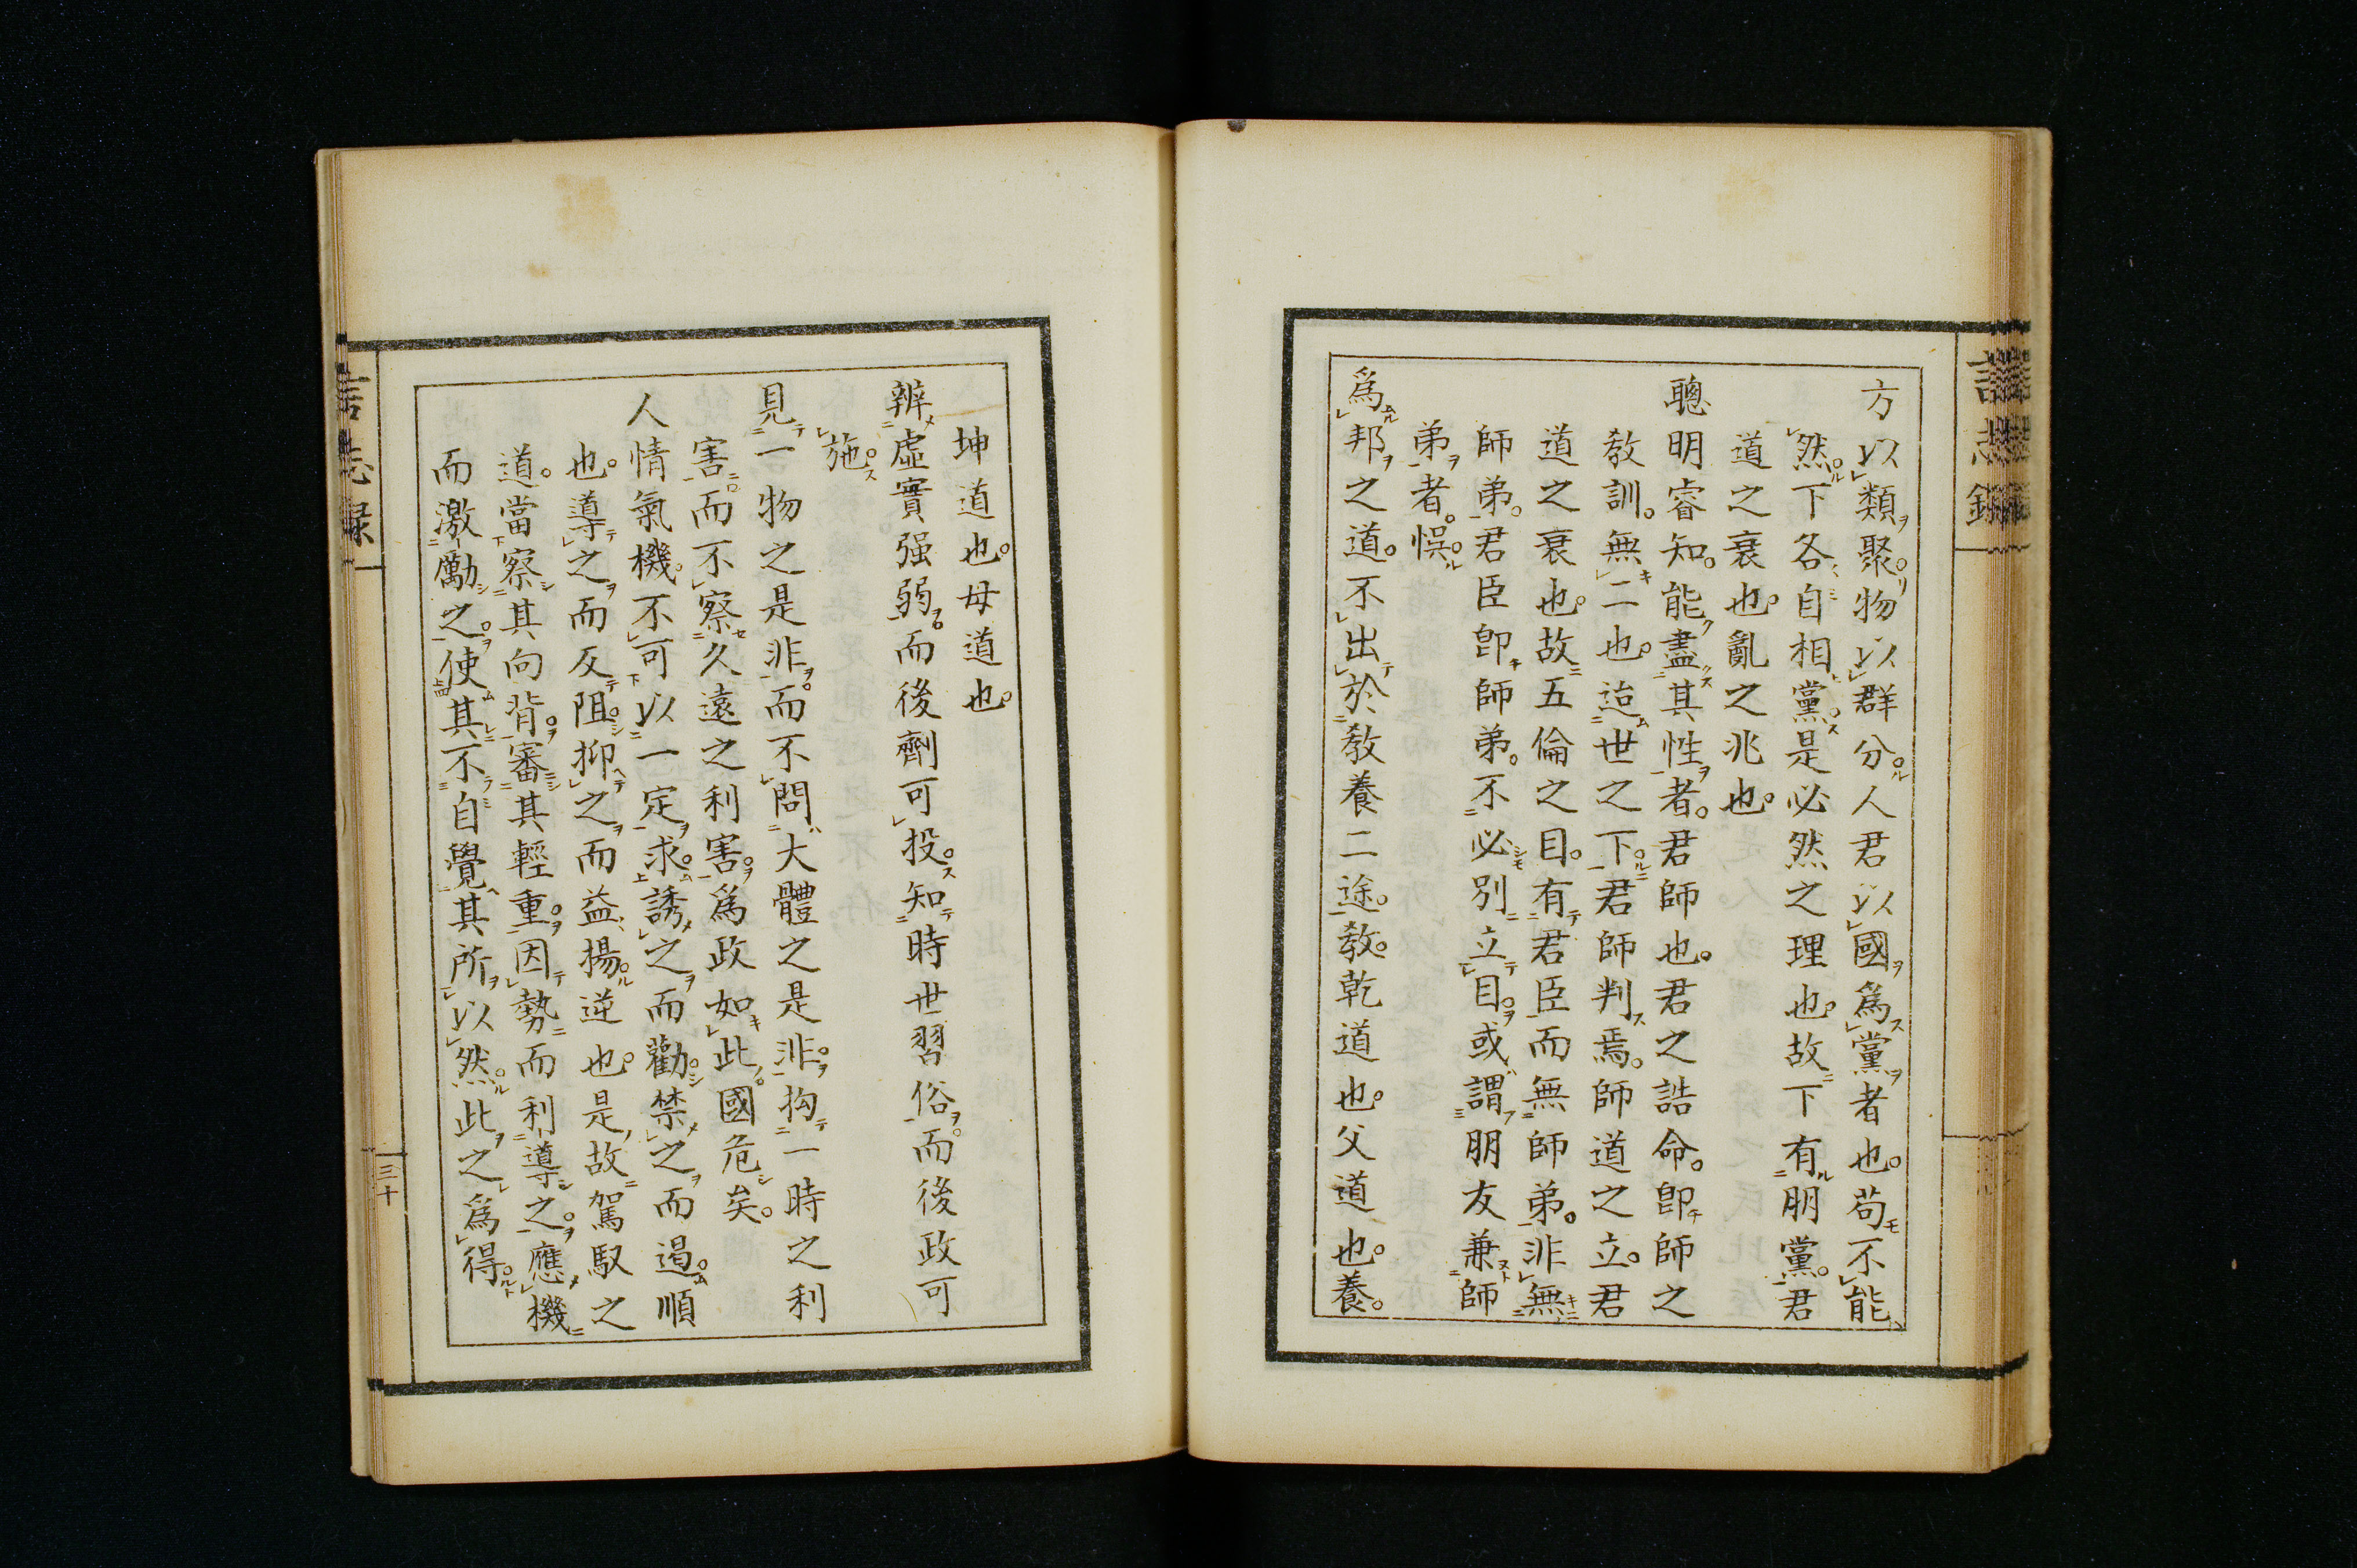 言志錄
方以類聚物以群分人君以國爲黨者也苟不能
然下各自相黨是必然之理也故下有朋黨君
道之衰也亂之兆也
聰明睿知能盡其性者君師也君之誥命卽師之
敎訓無二也迨世之下君師判焉師道之立君
道之衰也故五倫之目有君臣而無師弟非無
師弟君臣卽師弟不必別立目或謂朋友兼師
弟者悞
爲邦之道不出於敎養二途敎乾道也父道也養
坤道也母道也
辨虛實强弱而後劑可投知時世習俗而後政可
施
見一物之是非而不問大體之是非拘一時之利
害而不察久遠之利害爲政如此國危矣
人情氣機不可以一定求誘之而勸禁之而遏順
也導之而反阻抑之而益揚逆也是故駕馭之
道當察其向背審其輕重因勢而利導之應機
而激勵之使其不自覺其所以然此之爲得
言志錄
三十